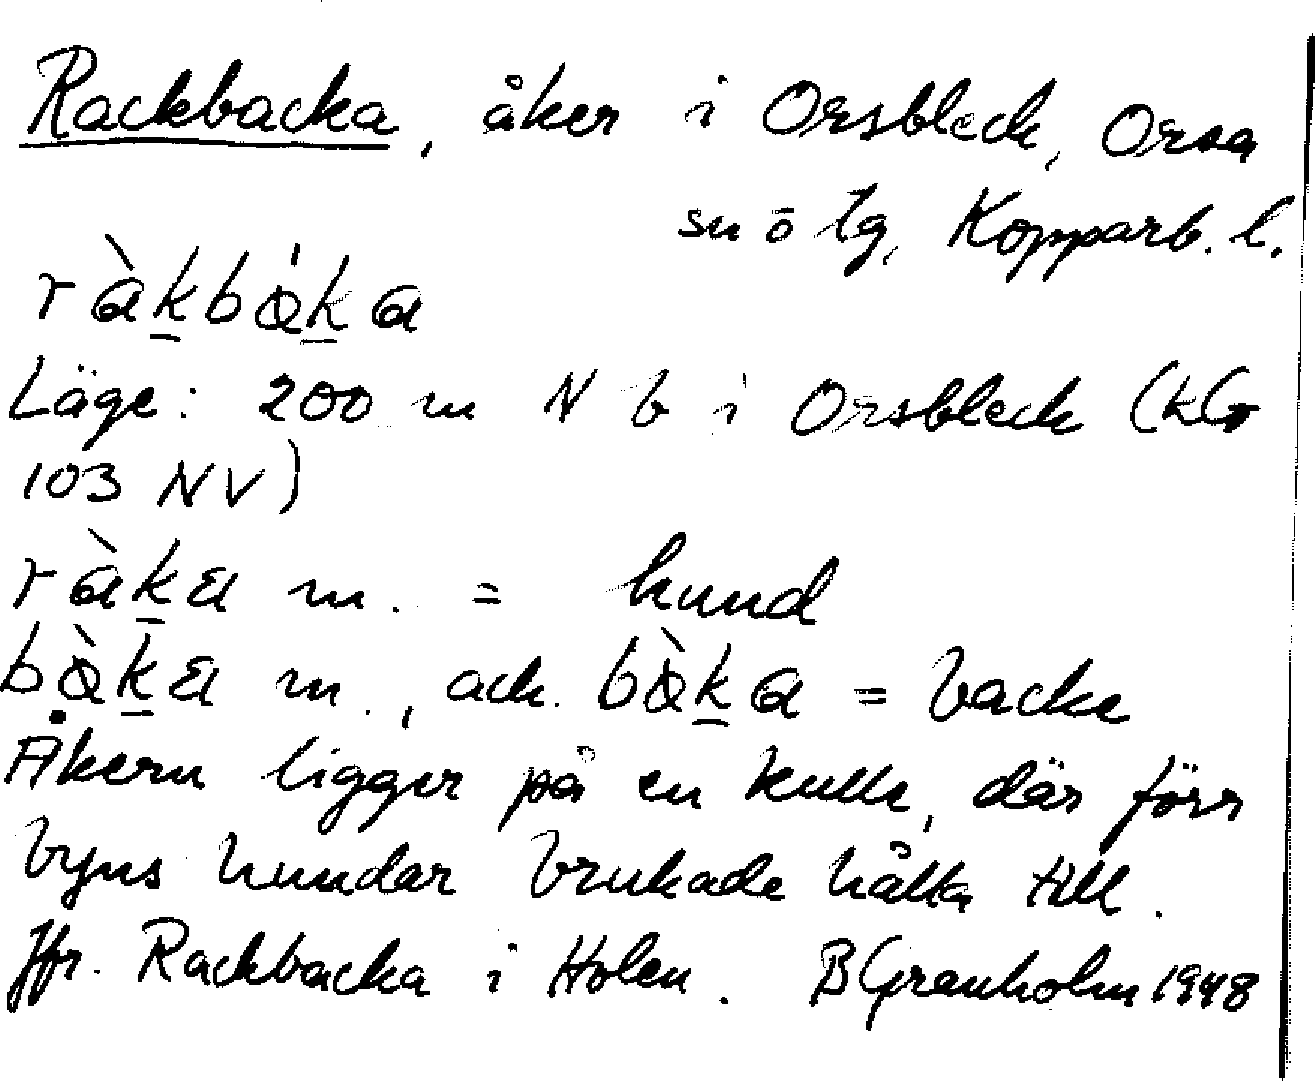 Rackbacka, åker i Orsbleck, Orsa
sn ö tg, Kopparb. l.
ràk̲bák̲a
Läge: 200 m N b i Orsbleck (kG
103 NV)
ràk̲a m. = hund
bàk̲a m., ack. bàk̲a = backe
Åkern ligger på en kulle, där förr
byns hundar brukade hålla till.
Jfr. Rackbacka i Holen. B Granholm 1948